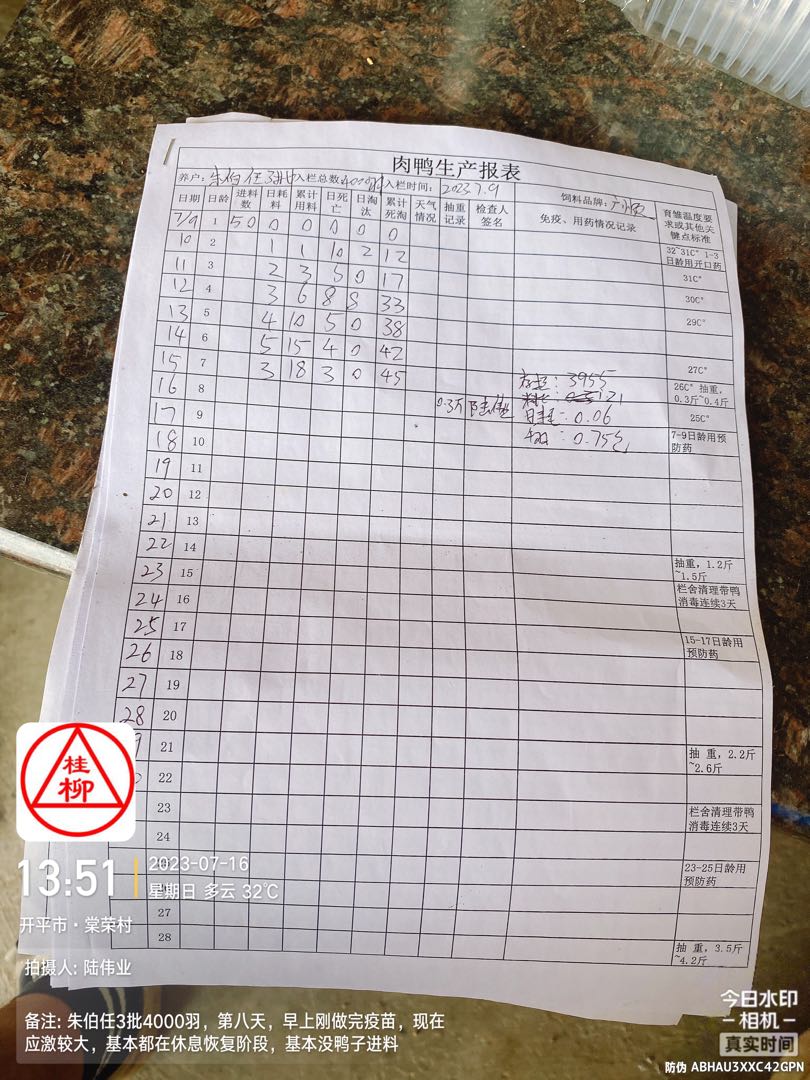 肉鸭生产报表
养户：朱伯任3批 入栏总数：4000羽 入栏时间：2023.7.9 饲料品牌：
日期 日龄 进料数 日耗料 累计用料 日死亡 日淘汰 累计死淘 天气情况 抽重记录 检查人签名 免疫、用药情况记录 育雏温度要求或其他关键点标准
7/9 1 50 0 0 0 0 0
10 2 1 1 10 2 12 32~31C° 1-3日龄用开口药
11 3 2 3 5 0 17 31C°
12 4 3 6 8 8 33 30C°
13 5 4 10 5 0 38 29C°
14 6 5 15 4 0 42
15 7 3 18 3 0 45 27C°
16 8 0.3斤 陆伟业 存栏：3955 26C° 抽重，0.3斤~0.4斤
17 9 日增重：0.06 25C°
18 10 0.75 7-9日龄用预防药
19 11
20 12
21 13
22 14
23 15 抽重，1.2斤~1.5斤
24 16 栏舍清理带鸭消毒连续3天
25 17
26 18 15-17日龄用预防药
27 19
28 20
21 抽重，2.2斤~2.6斤
22
23 栏舍清理带鸭消毒连续3天
24
23-25日龄用预防药
27
28 抽重，3.5斤~4.2斤
桂柳
13:51
2023-07-16
星期日 多云 32℃
开平市·棠荣村
拍摄人: 陆伟业
备注: 朱伯任3批4000羽，第八天，早上刚做完疫苗，现在
应激较大，基本都在休息恢复阶段，基本没鸭子进料
今日水印
-相机-
真实时间
防伪 ABHAU3XXC42GPN